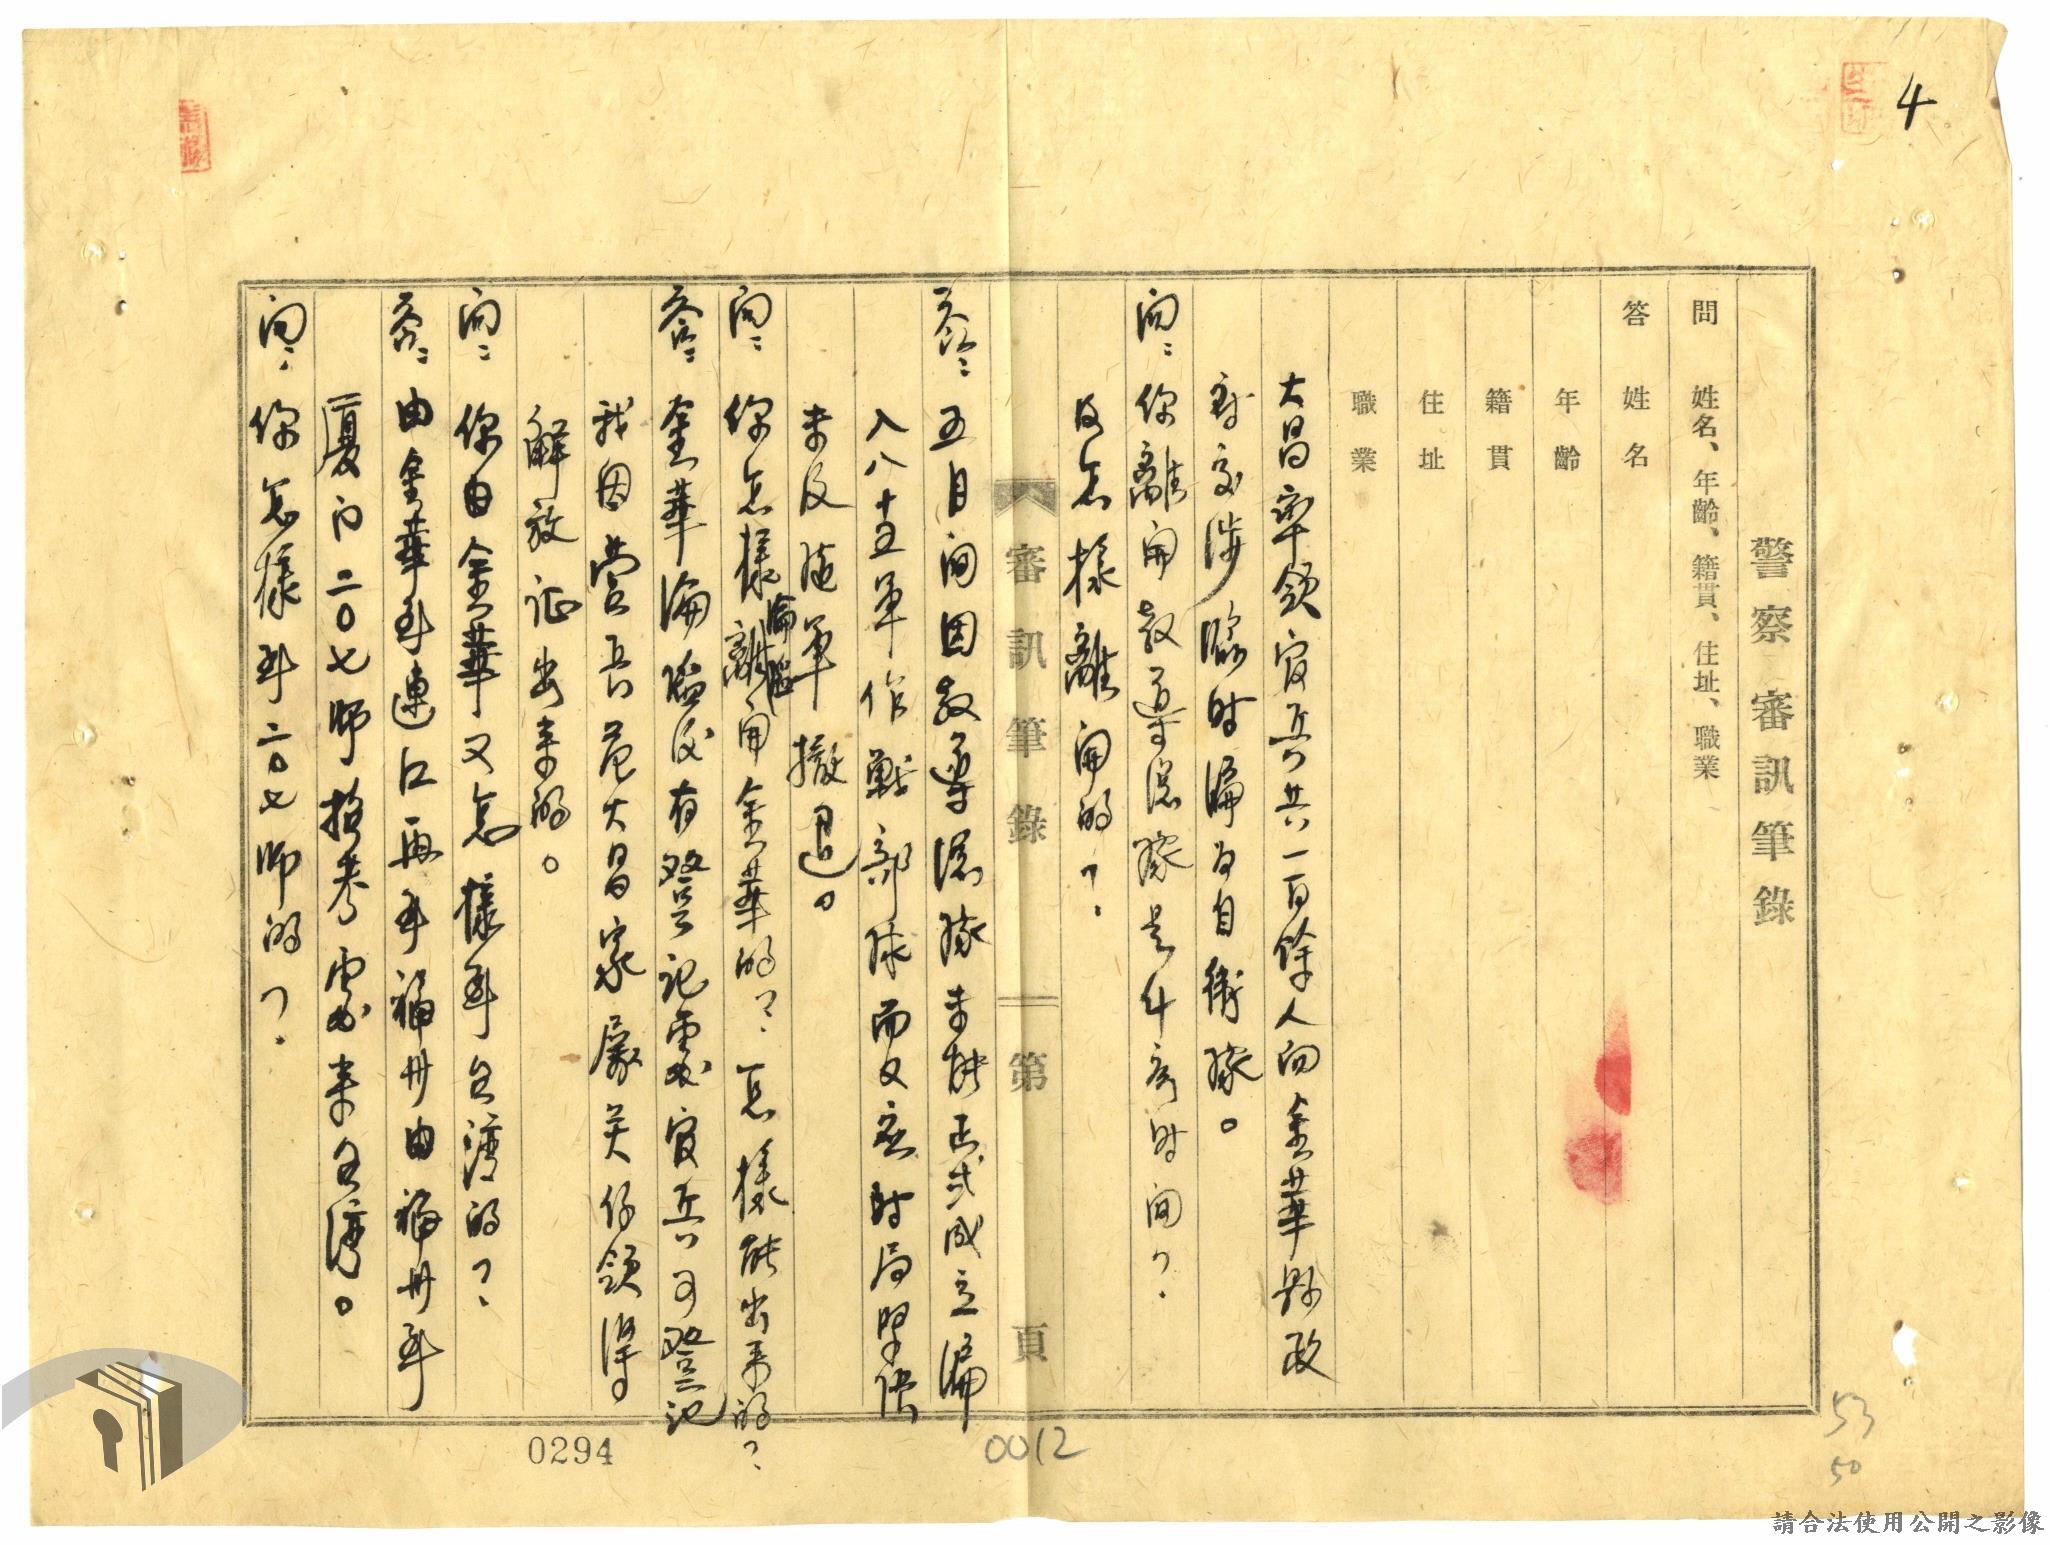 4
警察審訊筆錄
問 姓名、年齡、籍貫、住址、職業
答 姓名
年齡
籍貫
住址
職業
大昌率領官兵共一百餘人向金華縣政
府交涉臨時編為自衛隊。
問:你離開教導總隊是什麼時間?
及怎樣離開的?
審訊筆錄 第 頁
答:五月間因教導總隊未能正式成立編
入八十五軍作戰部隊而又應時局緊張
未及隨軍撤退。
問:你怎樣淪陷離開金華的?怎樣能出來的?
答:金華淪陷後有登記處官兵可登記
我因營長范大昌家屬關係領得
解放証出來的。
問:你由金華又怎樣到台灣的?
答:由金華到連江再到福州由福州到
廈門二〇七師招考處來台灣。
問:你怎樣到二〇七師的?
0294
0012
53
50
請合法使用公開之影像